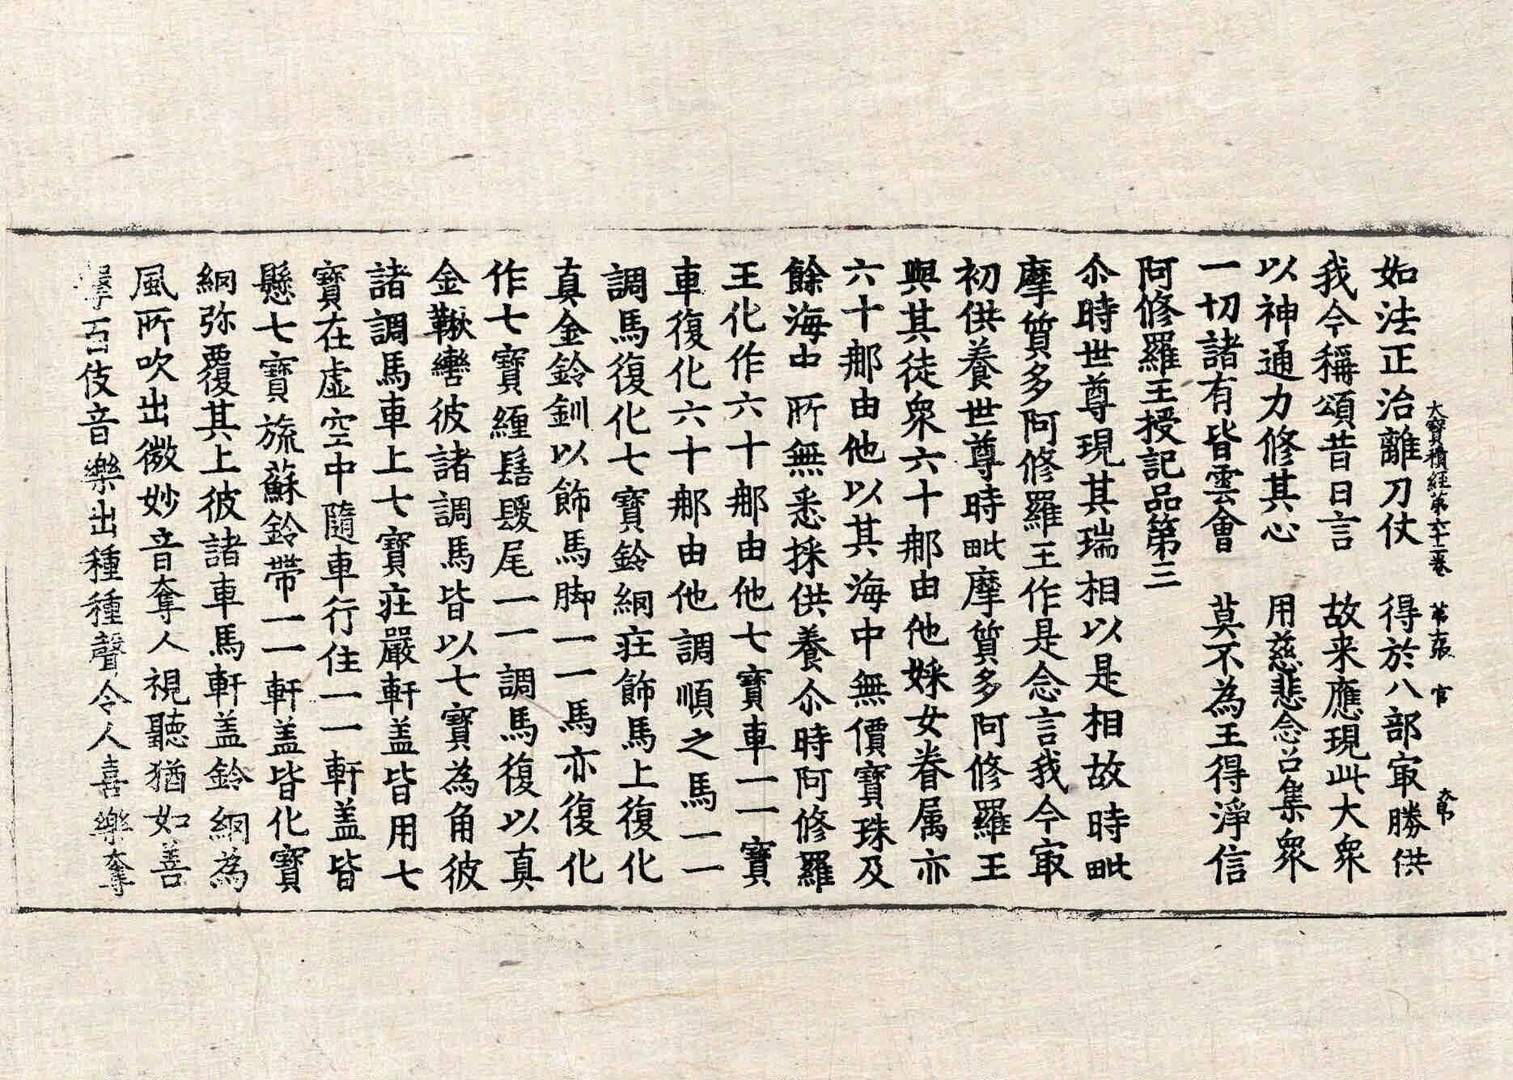 大寶積經第六十二卷 第十張 官
如法正治離刀仗 得於八部㝡勝供
我今稱頌昔日言 故来應現此大眾
以神通力修其心 用慈悲念召集眾
一切諸有皆雲會 莫不為王得淨信
阿修羅王授記品第三
尒時世尊現其瑞相以是相故時毗
摩質多阿修羅王作是念言我今㝡
初供養世尊時毗摩質多阿修羅王
與其徒眾六十那由他婇女眷属亦
六十那由他以其海中無價寶珠及
餘海中所無悉採供養尒時阿修羅
王化作六十那由他七寶車一一寶
車復化六十那由他調順之馬一一
調馬復化七寶鈴網莊飾馬上復化
真金鈴釧以飾馬脚一一馬亦復化
作七寶纏髻騣尾一一調馬復以真
金鞦轡彼諸調馬皆以七寶為角彼
諸調馬車上七寶莊嚴軒盖皆用七
寶在虛空中隨車行住一一軒盖皆
懸七寶旒蘇鈴帶一一軒盖皆化寶
網弥覆其上彼諸車馬軒盖鈴網為
風所吹出微妙音奪人視聽猶如善
擊百伎音樂出種種聲令人喜樂奪